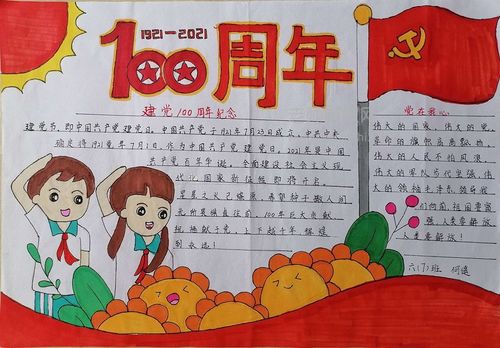 1921-2021
100周年
建党100周年纪念
建党节,即中国共产党建党日。中国共产党于1921年7月23日成立。中共中央
确定将1921党年7月1日,作为中国共产党建党日。2021年是中国
共产党百年华诞。全面建设社会主义现
代化国家新征程即将开启。
星星之火已爆燎,希望种子撒人间
元所畏惧直往前,100年巨大贡献
抚袖献于党,上下越千年 辉煌
到永远!
党在我心
伟大的国家,伟大的党。
革命的旗帜高高飘扬。
伟大的人民不怕风浪。
伟大的军队百代坚强,伟
大的领袖毛泽东领导我
们向前,祖国要富
强,人类要解放,
人类要解放!
六(7)班